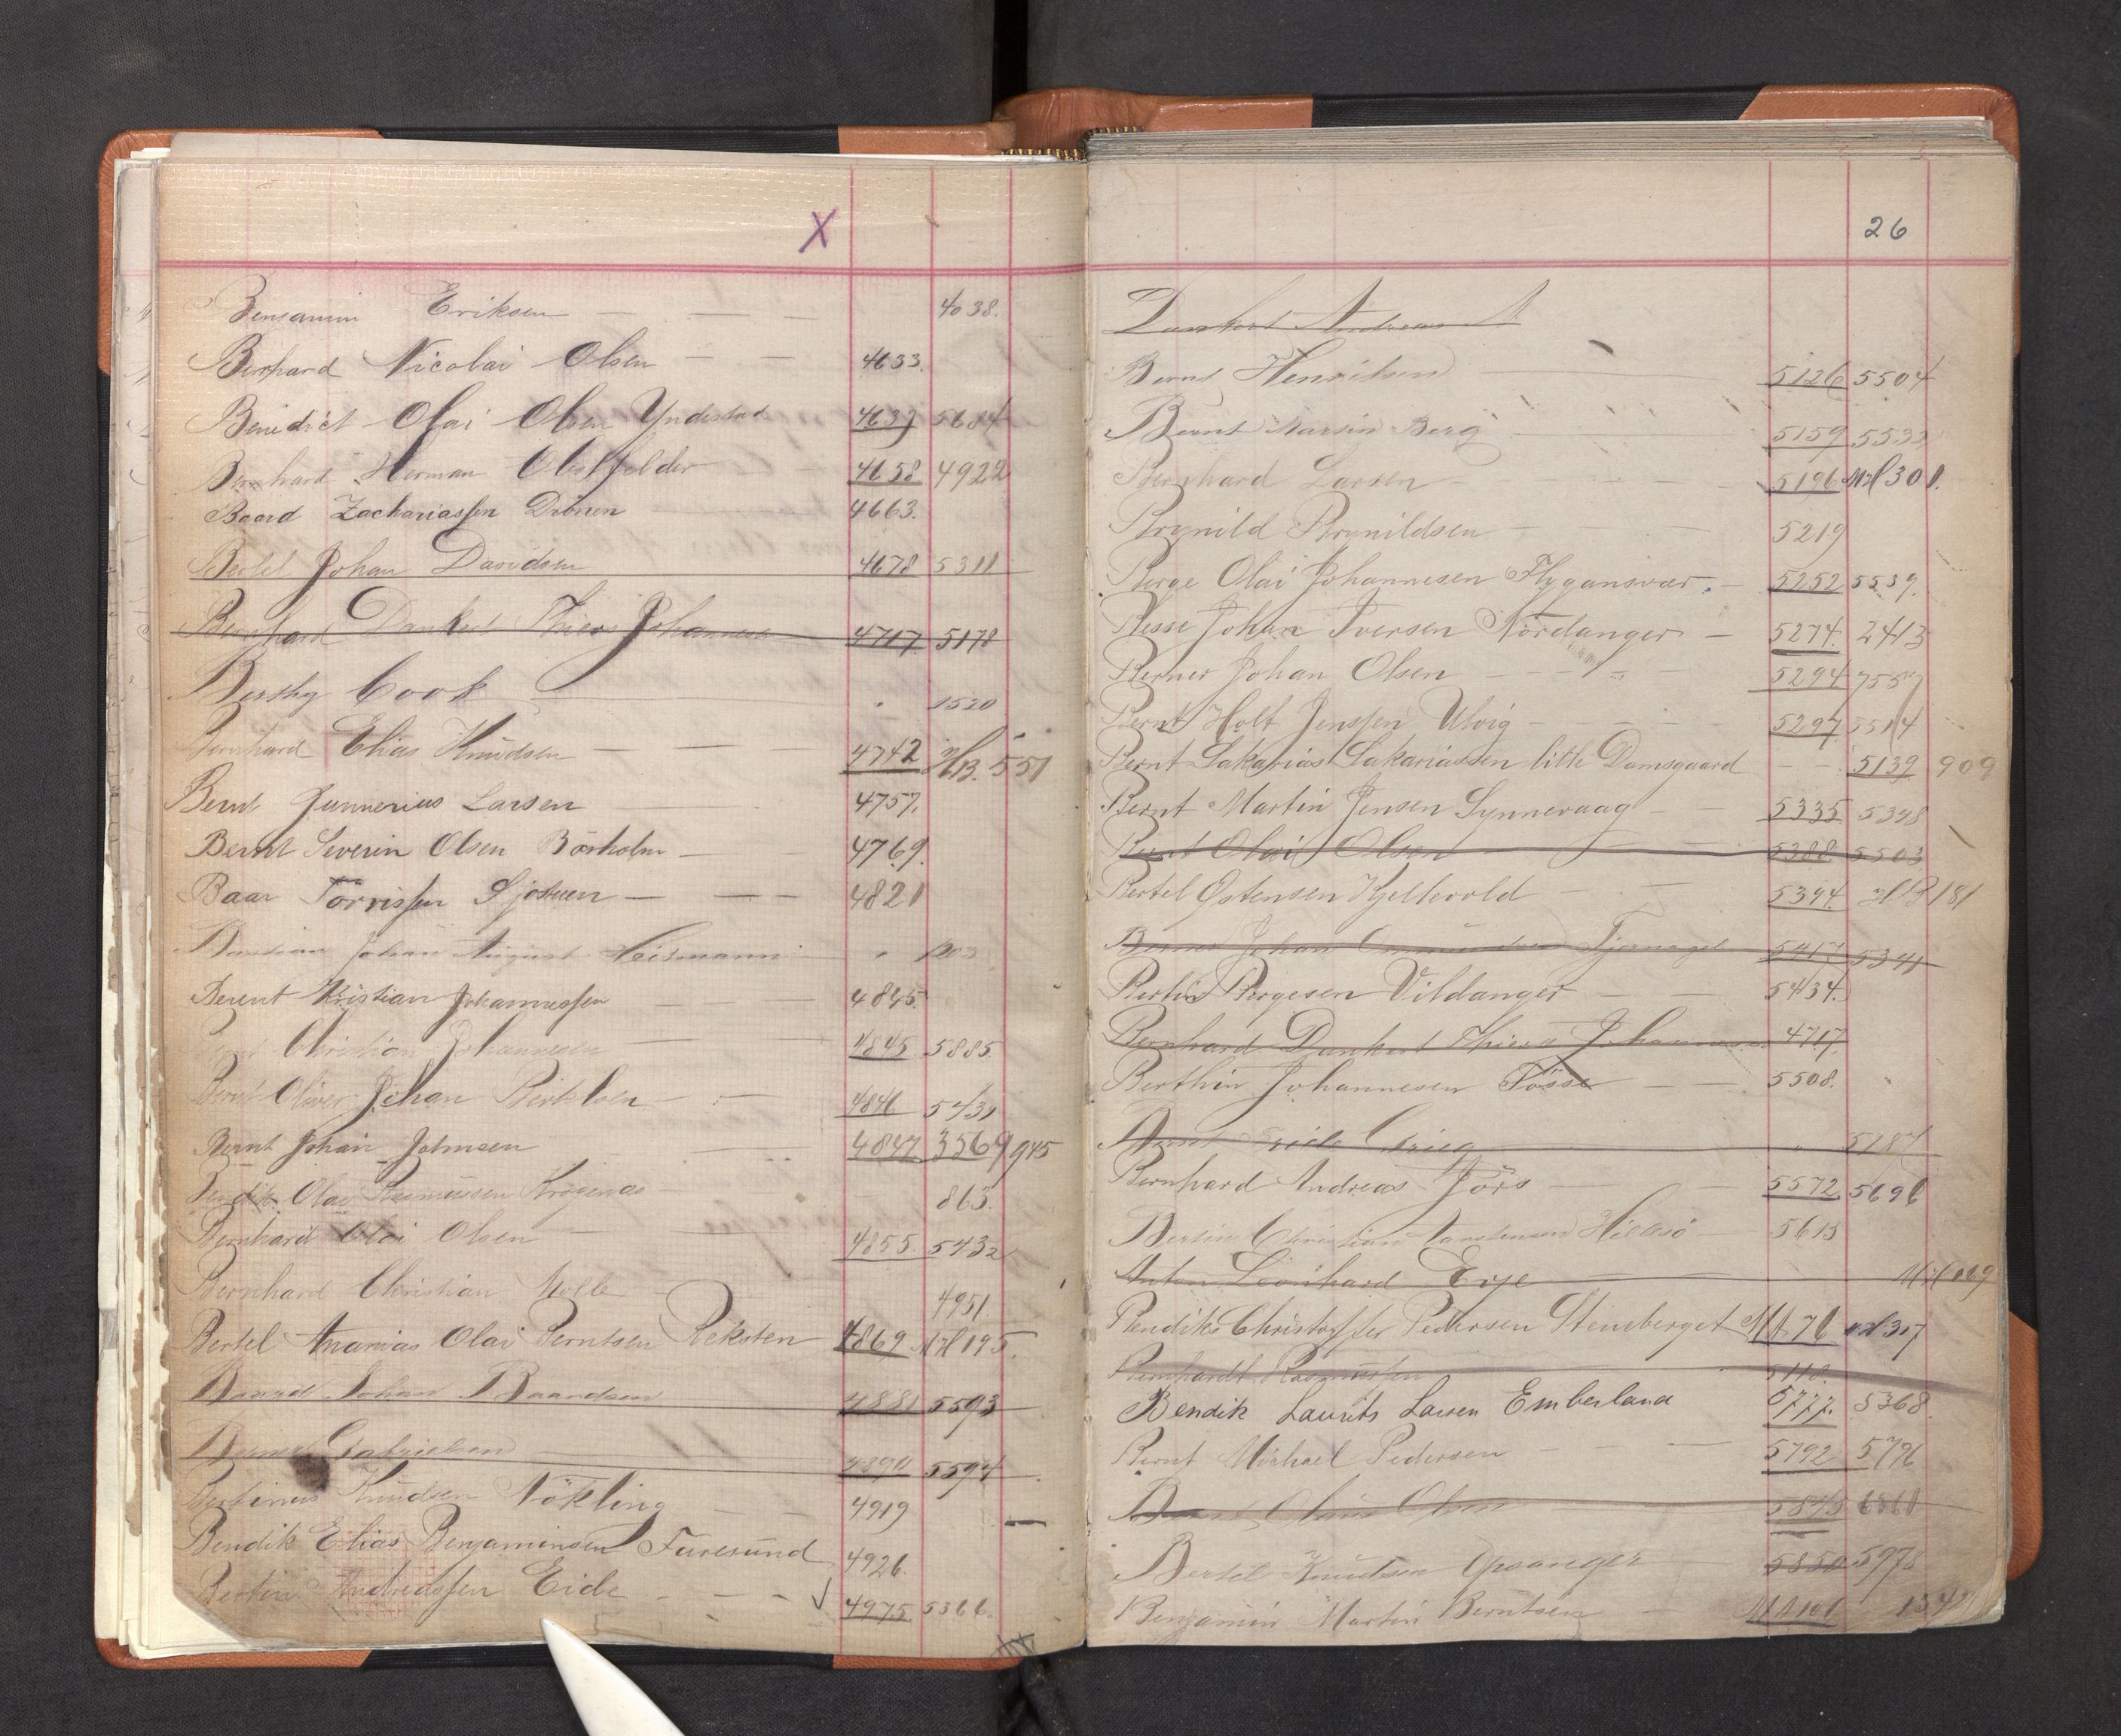 X
Benjamin Eriksen 4038.
Bernhard Nicolai Olsen 4633.
Benedict Olai Olsen Yndestad 4637 5684
Bernhard Herman Obstfelder 4658 4922
Baard Zachariassen Drönen 4663.
Bertel Johan Davidsen 4678 5311
Bernhard Dankert Thiers Johannesen 4717 5178
Cook 1520
Bernhard Elias Knudsen 4742 551
Bernt Junnerius Larsen 4757.
Bernt Severin Olsen Börholm 4769.
Baar Torrissen 4821
Bastian Johan August Neismann
Berent Kristian Johannessen 4845.
Bernt Christian Johannesen 4845 5885
Bernt Oliver Johan 4846 5431
Bernt Johan Johnsen 4847 3569 945
Bendik Olai Rasmussen 865.
Bernhard Olai Olsen 4855 5432
Bernhard Christian Molle 4951.
Bertel Ananias Olai Berntsen Reksten 4869 195.
Baard Johan Baardsen 4881 5593
Berner Gabrielsen 4890 5594
Bertinus Knudsen Nökling 4919
Bendik Elias Benjaminsen Furesund 4926.
Bertin Andreassen Eide 4975 5366.
26
Dankert Andreas
Bernt Henriksen 5126 5504
Bernt Martin Berg 5159 5532
Bernhard Larsen 5196 301.
Brynild Brynildsen 5219
Berge Olai Johannesen Flygansvær 5252 5539.
Besse Johan Iversen Nordanger 5274. 2413
Berner Johan Olsen 5294 7557
Bernt Holt Jenssen Ulvig 5297 5514
Bernt Sakarias Sakariassen lille Damsgaard 5139 909
Bernt Martin Jensen Synnevaag 5335 5348
Bernt Olai Olsen 5388 5503
Bertel Østensen Kjellevold 5394. 181
Berner Johan Tjernagel 5417 5341
Bertin Børgesen Vildanger 5434.
Bernhard Dankert Thiers Johannesen 4717.
Berthin Johannesen Tösse 5508.
Grieg 5187
Bernhard Andreas Jörs 5572 5696
Bertin Christian Hillesö 5615
Anton Leonhard Erje
Bendiks Christoffer Pedersen Stensberget 76 317
Bernhardt Rasmussen 5118.
Bendik Laurits Larsen Emberland 5777. 5368
Bernt Michael Pedersen 5792 5796
Bernt Olaus Olsen 5845
Bertel Knudsen Opsanger 5850 5978
Benjamin Martin Berntsen 106